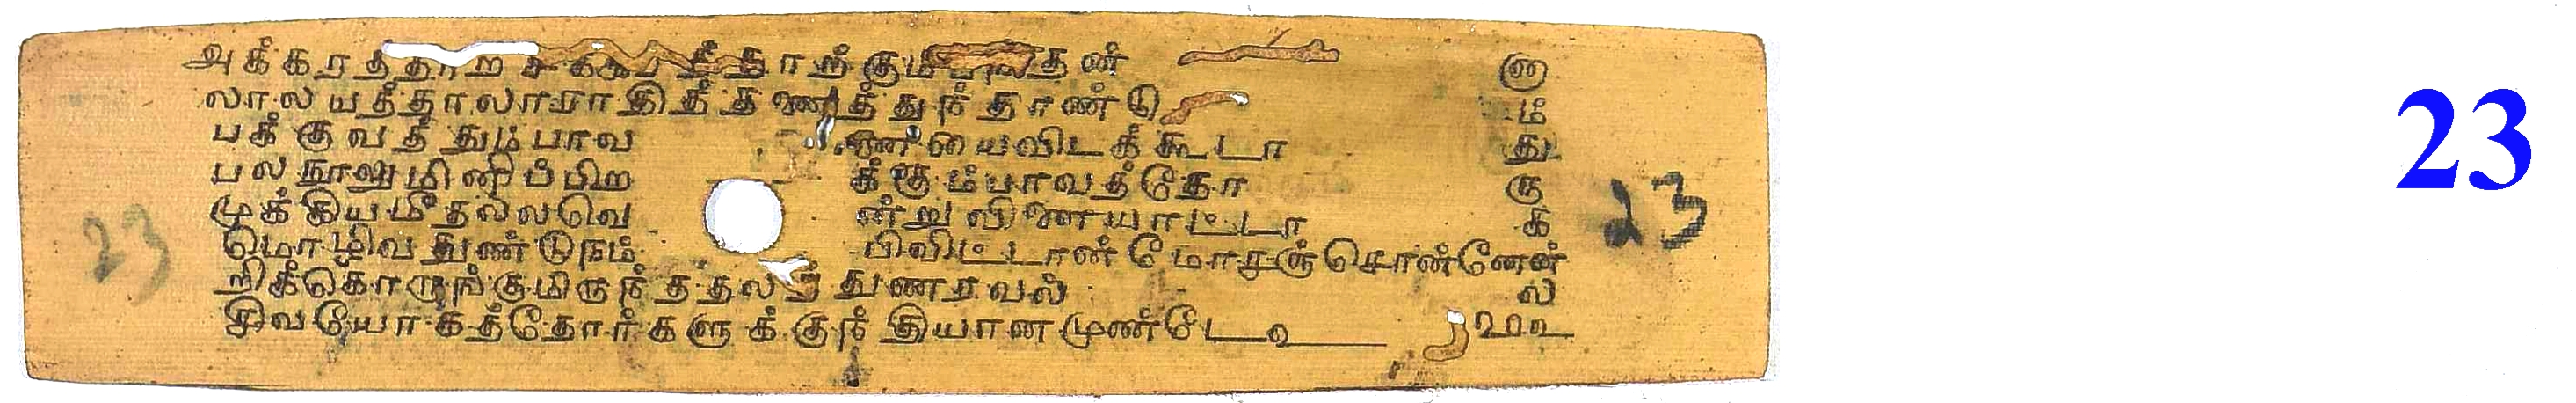 அக்கரத்தாற சக்கரத்தாற்கும் தண் ணு
லாலயத்தாலாசாதித்தணைத்துந்தாண்டு ம்
பக்குவத்தும்பாவ ணையைவிடக்கூடா து
பலநூலுமினிப்பிற க்கும்பாவத்தோ ரு
முக்கியமீதல்லவெ ன்றுவிணையாட்டா கி
மொழிவதுண்டுநம் பிவிட்டாண்மோசஞ்சொண்ணேன்
றிக்கொருங்குமிருந்ததலத் துணரவல் ல
சிவயோகத்தோர்களுக்குந்தியானமுண்டே
23
23
23